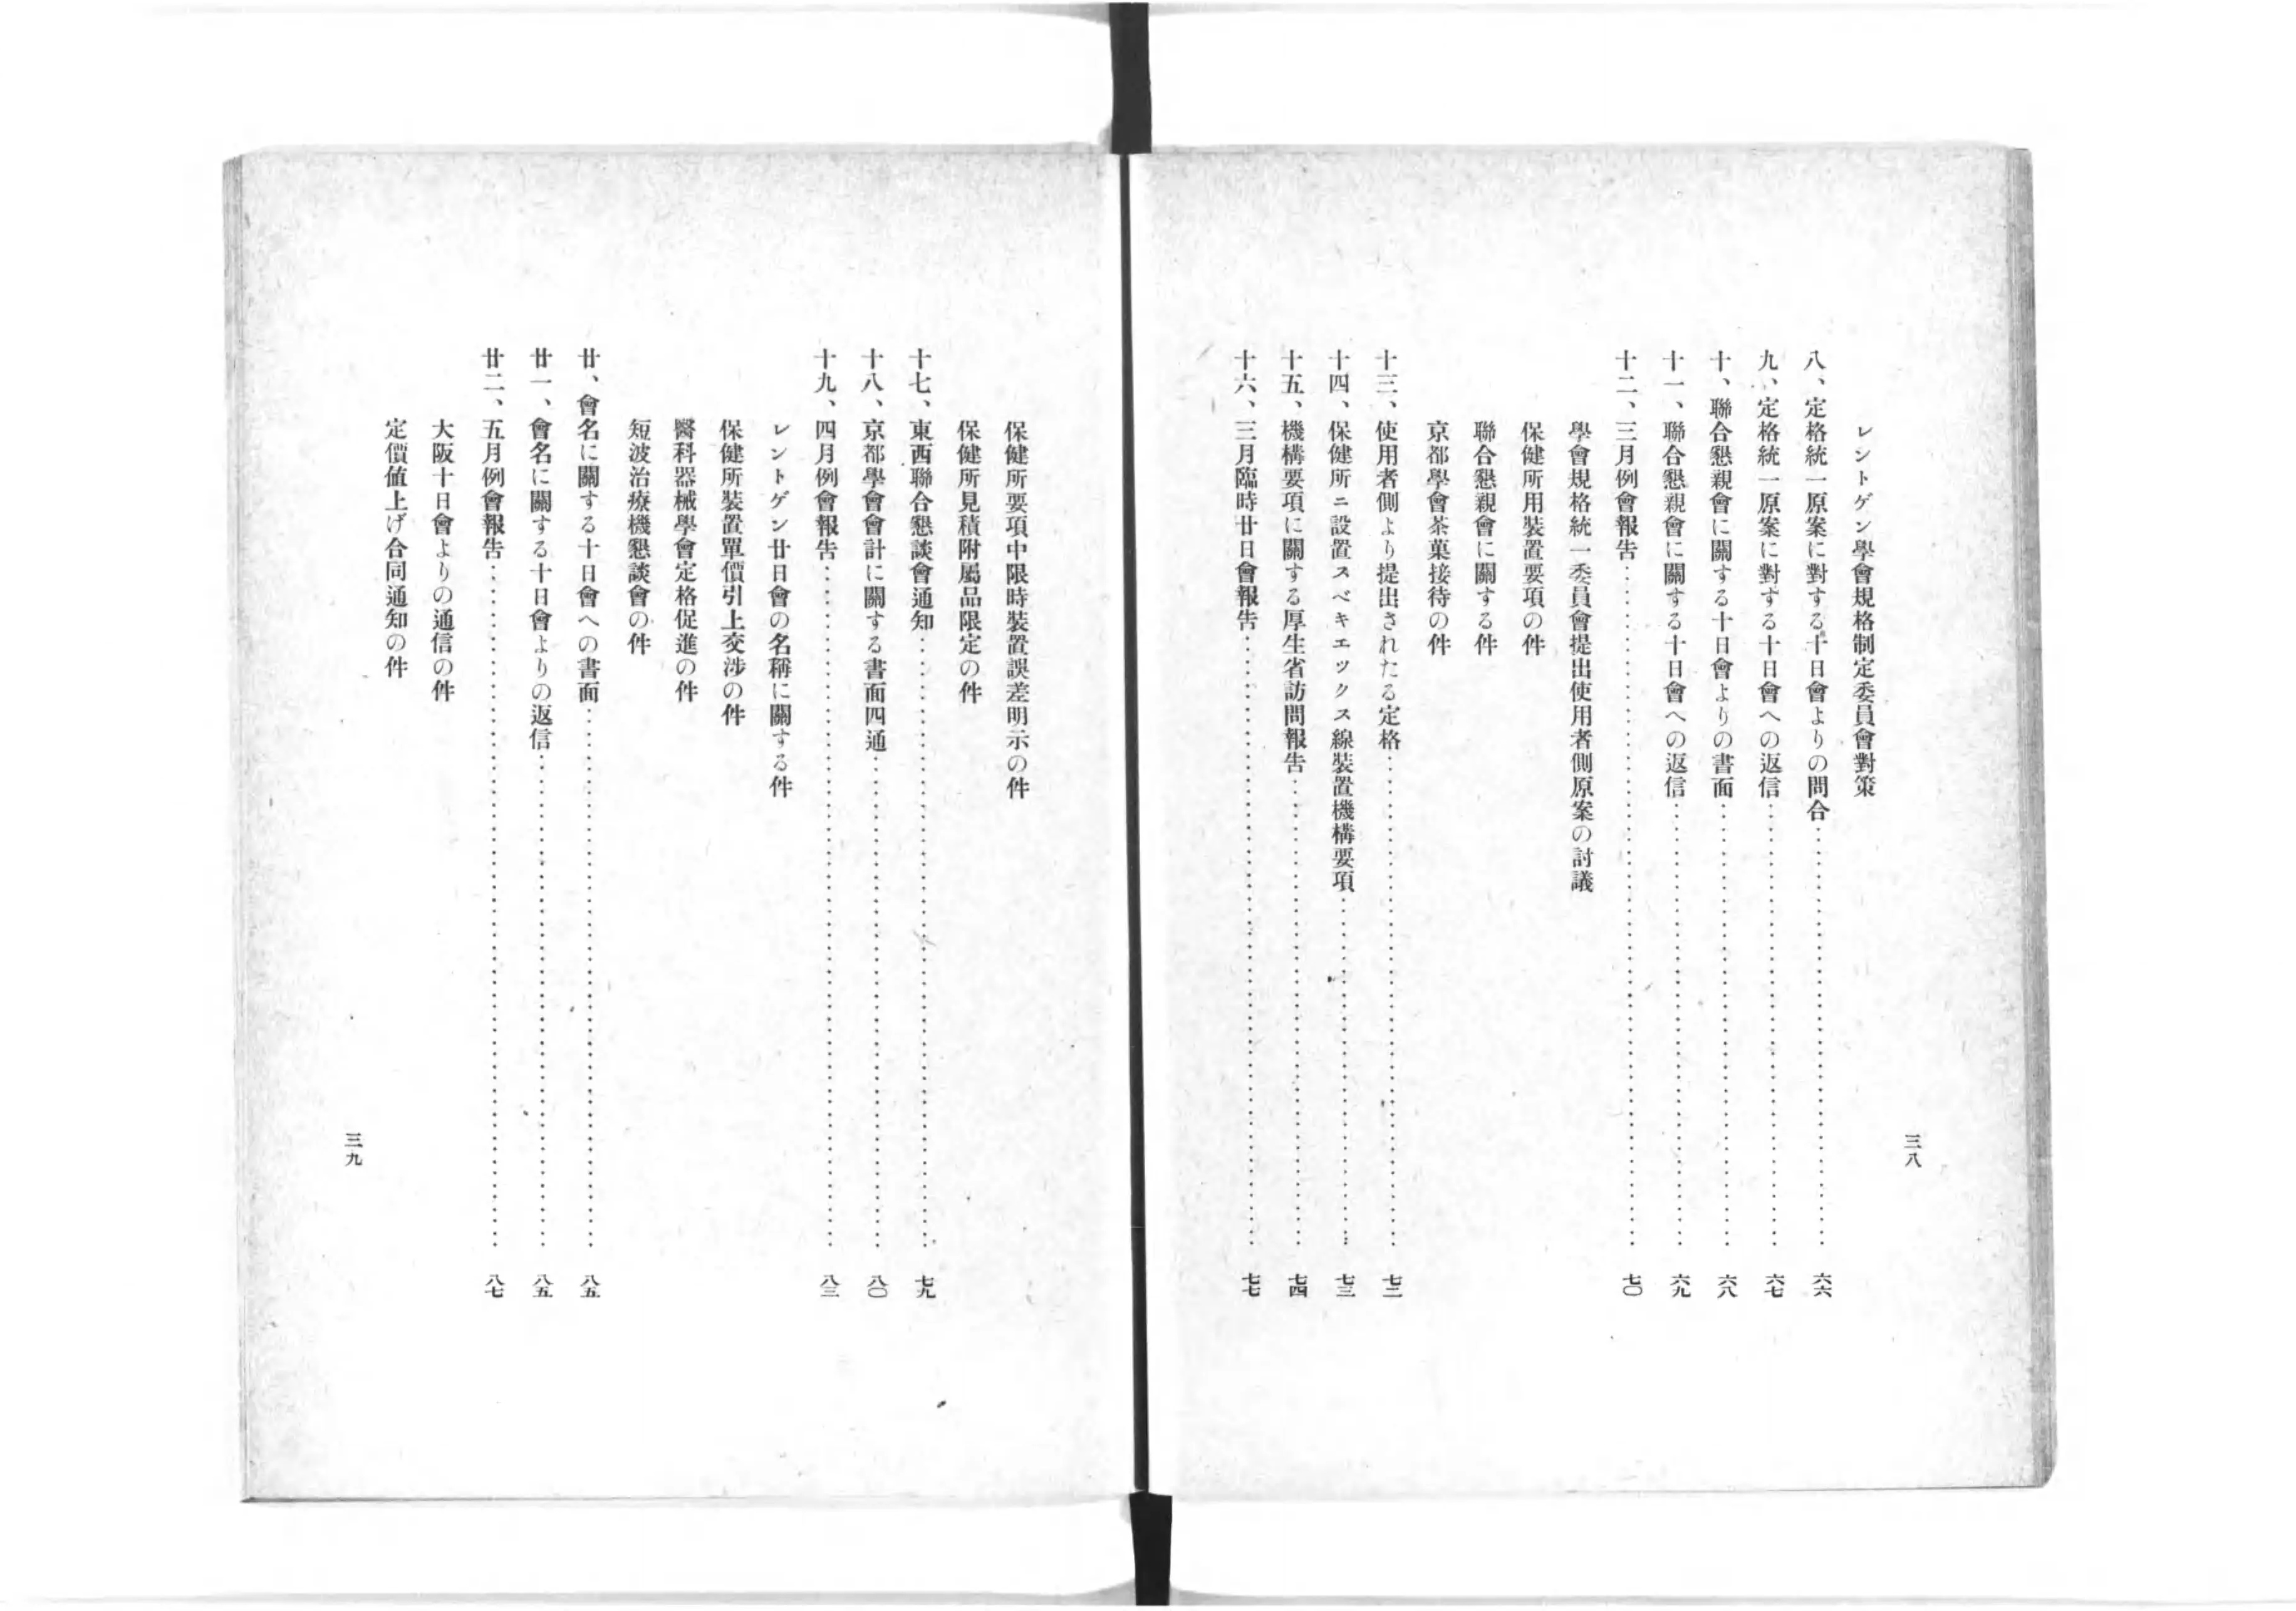 三八
レントゲン學會規格制定委員會對策
八、定格統一原案に對する十日會よりの問合……六六
九、定格統一原案に對する十日會への返信……六七
十、聯合懇親會に關する十日會よりの書面……六八
十一、聯合懇親會に關する十日會への返信……六九
十二、三月例會報告……七〇
學會規格統一委員會提出使用者側原案の討議
保健所用裝置要項の件
聯合懇親會に關する件
京都學會茶菓接待の件
十三、使用者側より提出されたる定格……七二
十四、保健所ニ設置スベキエックス線裝置機構要項……七三
十五、機構要項に關する厚生省訪問報告……七四
十六、三月臨時廿日會報告……七七
保健所要項中限時裝置誤差明示の件
保健所見積附屬品限定の件
十七、東西聯合懇談會通知……七九
十八、京都學會會計に關する書面四通……八〇
十九、四月例會報告……八三
レントゲン廿日會の名稱に關する件
保健所裝置單價引上交涉の件
醫科器械學會定格促進の件
短波治療機懇談會の件
廿、會名に關する十日會への書面……八五
廿一、會名に關する十日會よりの返信……八五
廿二、五月例會報告……八七
大阪十日會よりの通信の件
定價値上げ合同通知の件
三九